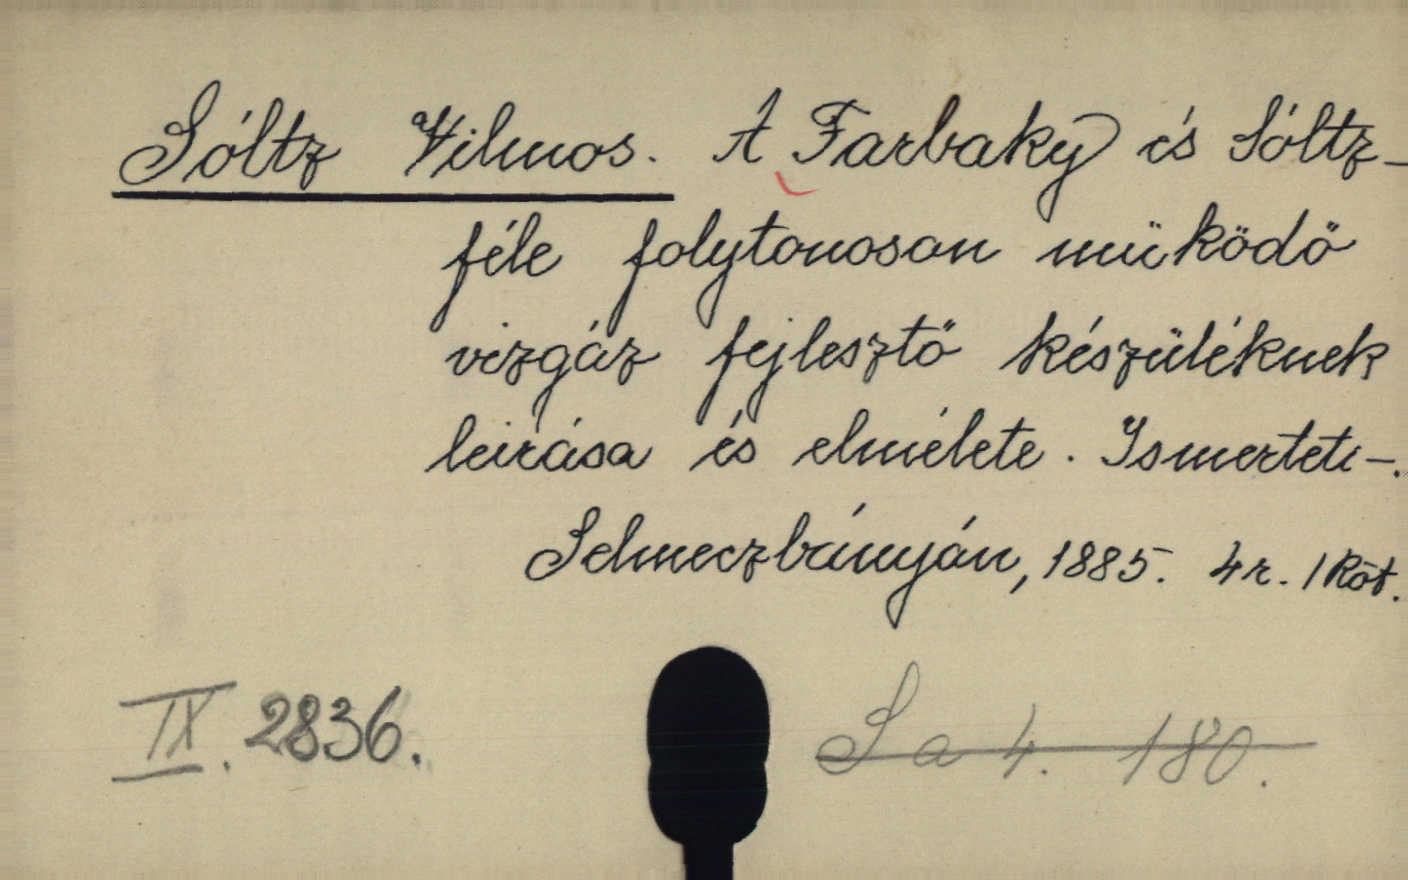 Sóltz Vilmos. A Farbaky és Sóltz-
féle folytonosan müködő
vizgáz fejlesztő készüléknek
leirása és elmélete. Ismerteti -.
Selmeczbányán, 1885. 4r. 1 Köt.
IX. 2836.
Sa 4. 180.